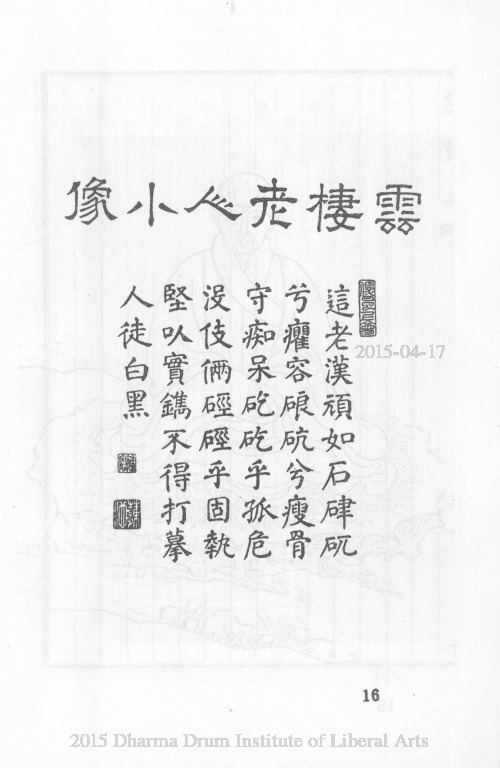 雲棲老人小像
這老漢頑如石硉矹
兮癯容硠砊兮瘦骨
守痴呆矻矻乎孤危
没伎倆硜硜乎固執
堅以實鐫不得打摹
人徒白黑
2015-04-17
16
2015 Dharma Drum Institute of Liberal Arts